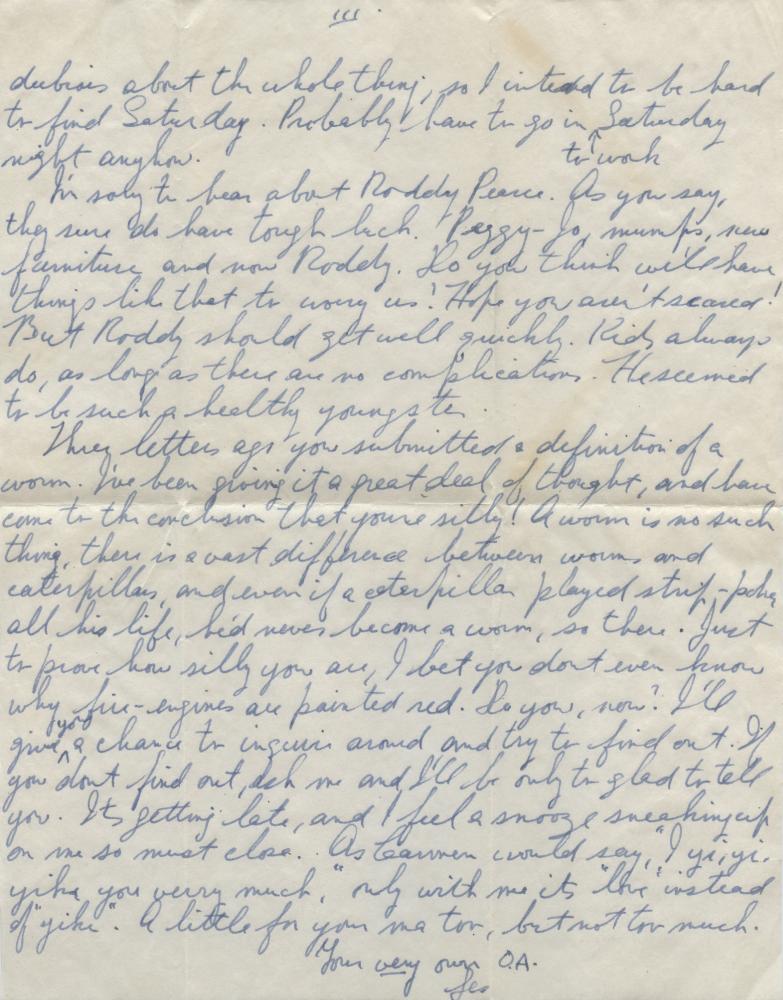 III.
dubious about the whole thing, so I intend to be hard
to find Saturday. Probably have to go in ^ Saturday
night anyhow. to work
I'm sorry to hear about Roddy Pearce. As you say,
they sure do have tough luck. Peggy-Jo, mumps, new
furniture, and now Roddy. Do you think we'll have
things like that to worry us? Hope you aren't scared!
But Roddy should get well quickly. Kids always
do, as long as there are no complications. He seemed
to be such a healthy youngster.
Three letters ago you submitted a definition of a
worm. I've been giving it a great deal of thought, and have
come to the conclusion that you're silly! A worm is no such
thing, there is a vast difference between worms and
caterpillars, and even if a caterpillar played strip-poker
all his life, he'd never become a worm, so there. Just
to prove how silly you are, I bet you dont even know
why fire-engines are painted red. Do you, now? I'll
give ^you a chance to inquire around and try to find out. If
you don't find out, ask me and I'll be only to glad to tell
you. Its getting late, and I feel a snooze sneaking up
on me so must close. As Carmen would say, "I yi, yi,
yike you verry much," only with me its "love" instead
of "yike". A little for your ma too, but not too much.
Your very own O.A.
Les